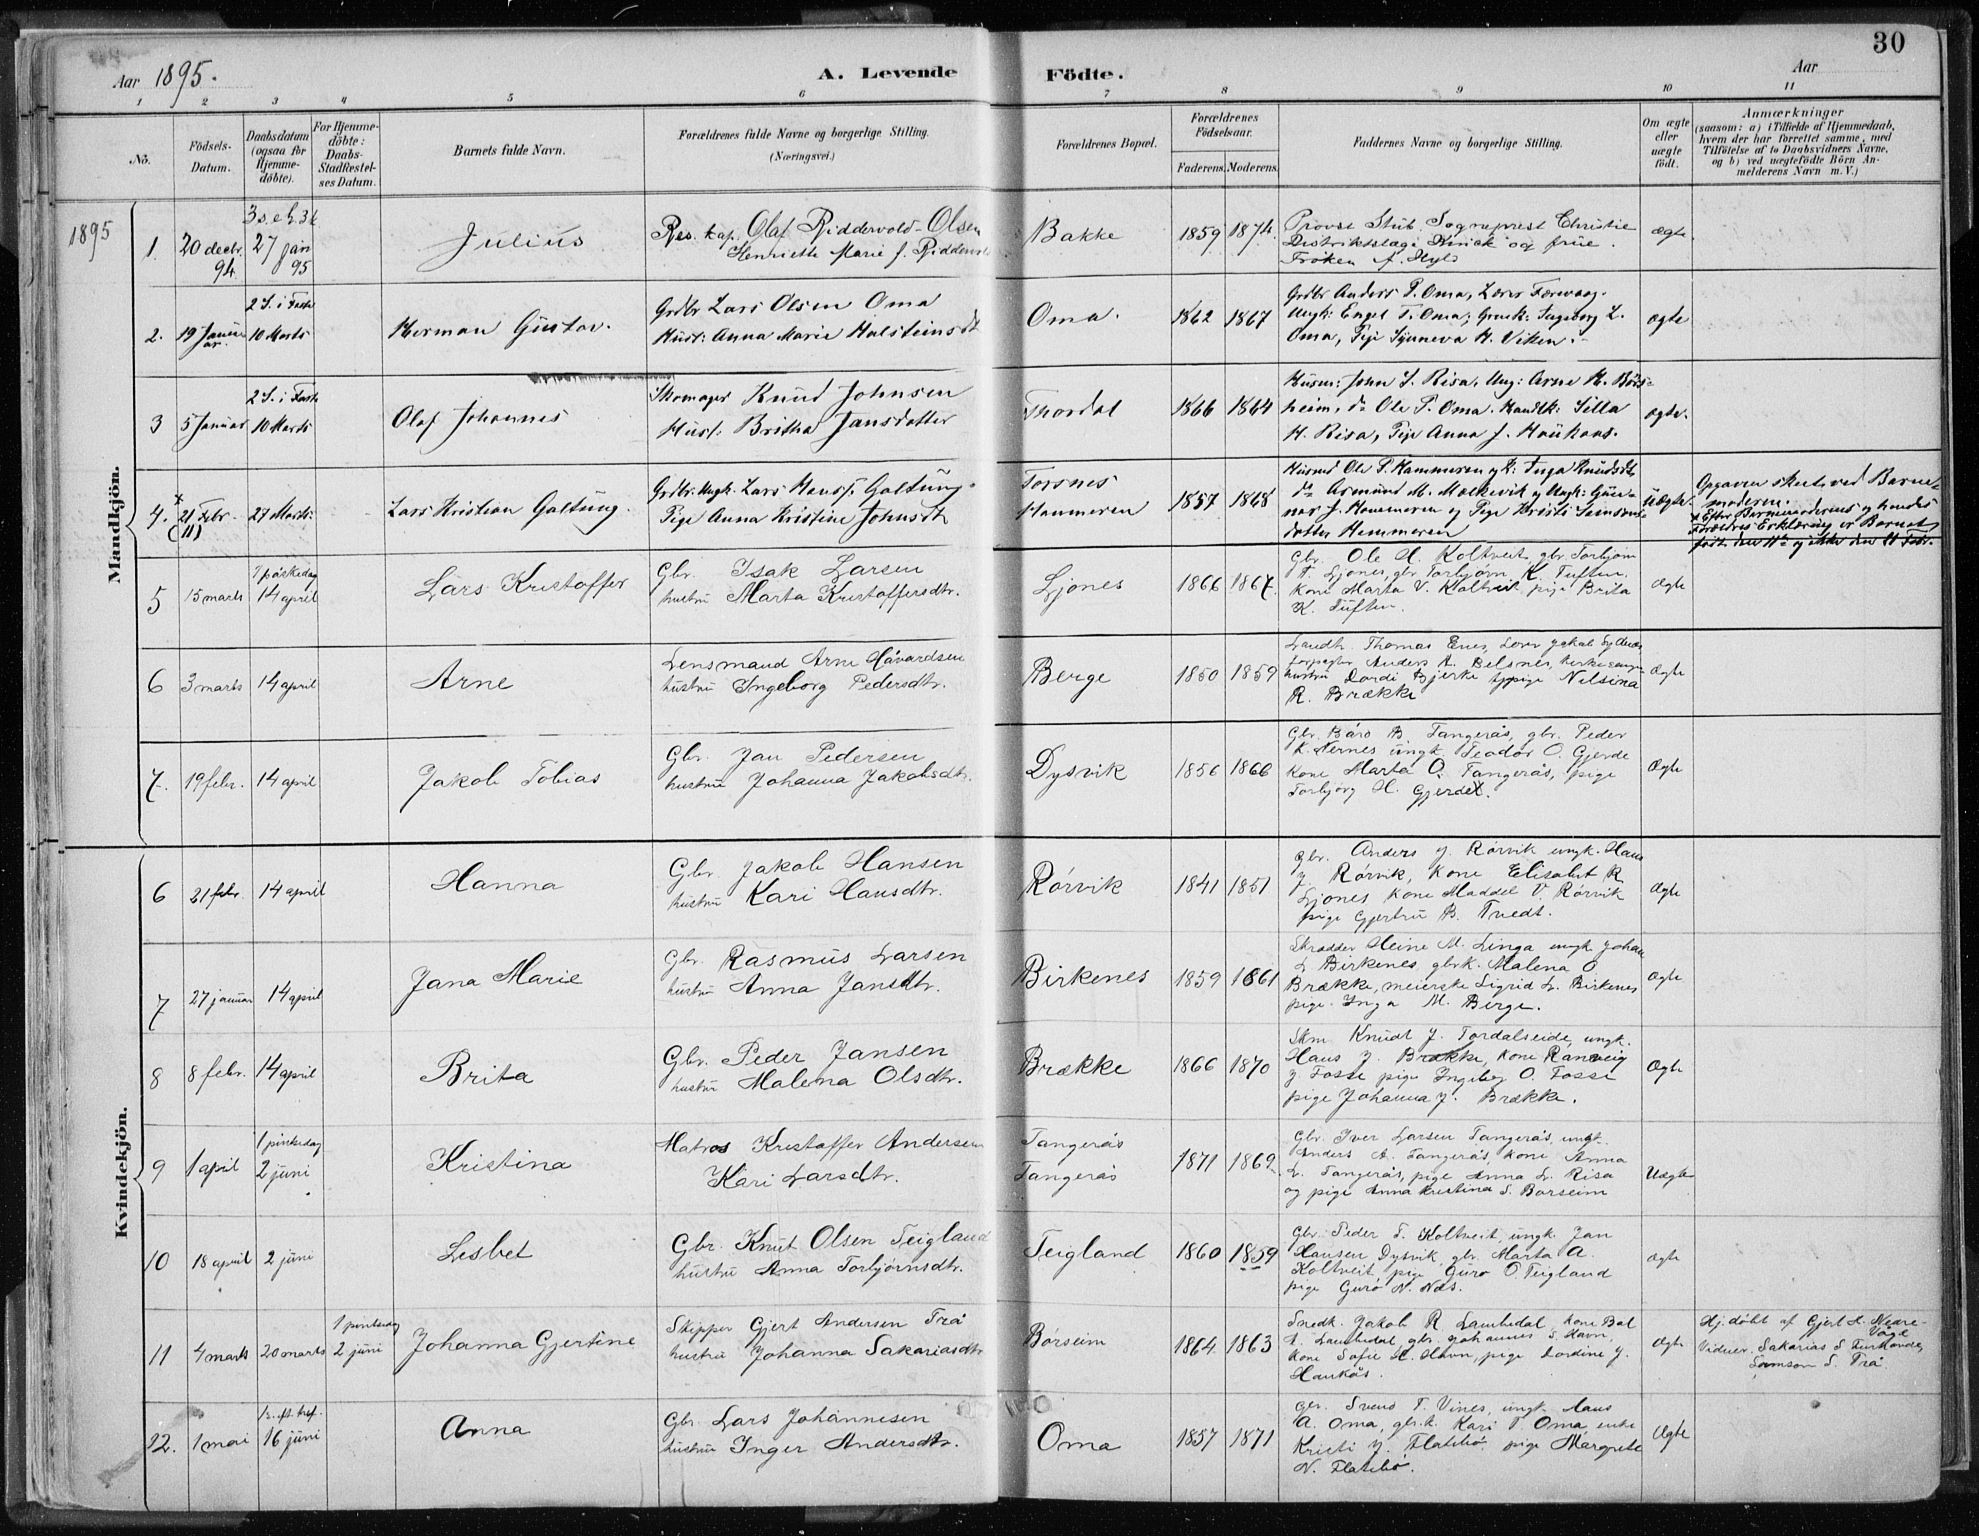 30
Aar 1895.
A. Levende Födte.
Aar
1 2 3 4 5 6 7 8 9 10 11
No.
Födsels-Datum.
Daabsdatum (ogsaa for Hjemme-døbte).
For Hjemme-døbte: Daabs-Stadfestel-ses Datum.
Barnets fulde Navn.
Forældrenes fulde Navne og borgerlige Stilling. (Næringsvei.)
Forældrenes Bopæl.
Forældrenes Födselsaar.
Faderens. Moderens.
Faddernes Navne og borgerlige Stilling.
Om ægte eller uægte født.
Anmærkninger
(saasom: a) i Tilfælde af Hjemmedaab,
hvem der har forrettet samme, med
Tilföielse af to Daabsvidners Navne,
og b) ved uægtefödte Börn An-
melderens Navn m. V.)
1895
Mandkjön.
1. 20 decbr. 94. 3 s. e. h. 3 k. 27 jan 95
Julius
Res. kap. Olaf Riddervold-Olsen
Henriette Marie f. Riddervold
Bakke
1859 1874
Provst Stub. Sogneprest Christie
Distriktslæge Kinck og frue.
Frøken
ægte
2. 19 Januar. 2 S. i Faste 10 Marts
Herman Gustav.
Grdbr Lars Olsen Oma
Hust: Anna Marie Halsteinsdt
Oma.
1862 1867
Grdbr Anders P. Oma, Lærer
Ungk: Engel T. Oma, Ingeborg L.
Oma, Pige Synneva H. Viken.
ægte
3 5 Januar 2 S. i Faste 10 Marts
Olaf Johannes
Skomager Knud Johnsen
Hust: Britha Jansdatter
Thordal
1866 1864
Husm: John S. Risa, Ung: Arne H. Börs-
heim, do Ole P. Oma. Silla
H. Risa, Pige Anna J. Haukaas.
ægte.
4. 21 Febr. (11) 24 Marts:
Lars Kristian Galtung.
Grdbr. Ungk. Lars Hansf. Galtung.
Pige Anna Kristine Johnsdt
Torsnes
Hammeren
1857 1868
Husmd Ole P. Hammeren og K: Inga Knudsdt
do Asmund M. Mælkevik og Ungk: Gun-
nar J. Hammeren og Pige Kristi Samsons-
datter Hammeren
Uægte.
Opgaven skeet ved Barne-
moderen.
x Efter Barnemoderens og hendes
Forældres Erklæring er Barnet
født den 11te og ikke den 21 Febr.
5 15 marts 1 påskedag 14 april
Lars Kristoffer
Gbr. Isak Larsen
hustru Marta Kristoffersdtr.
Ljones
1866 1867.
Gbr. Ole H. Koltveit, gbr. Torbjørn
T. Ljones, gbr Torbjørn K. Tuften.
Kone Marta V. Koltveit, pige Brita
K. Tuften.
Ægte
6 3 marts 14 april
Arne
Lensmand Arne Håvardsen
hustru Ingeborg Pedersdtr.
Berge
1850 1859
Landh. Thomas Enes, Lærer Jakob
Anders A. Belsnes, kirkesanger
hustru Dordi Bjerke pige Nilsina
R. Brække
Ægte
7. 19 febr. 14 april
Jakob Tobias
Gbr. Jan Pedersen
hustru Johanna Jakobsdtr.
Dysvik
1856 1866
Gbr. Båro B. Tangerås, gbr. Peder
K. Nernes ungk. Teodor O. Gjerde
Kone Marta O. Tangerås, pige
Torbjørg H. Gjerde.
Ægte
Kvindekjön.
6 21 febr. 14 april
Hanna
Gbr. Jakob Hansen
hustru Kari Hansdtr.
Rørvik
1841 1851
gbr. Anders J. Rørvik ungk. Hans
J. Rørvik, kone Elisabet R
Ljones kone Maddel V. Rørvik
pige Gjertru B. Tvedt.
Ægte
7 27 januar 14 april
Jana Marie
Gbr. Rasmus Larsen
hustru Anna Jansdtr.
Birkenes
1859 1861
Skrædder Heine M. Linga ungk Johan
L Birkenes gbrk. Malena O
Brække, meierske Sigrid L. Birkenes
pige. Inga M. Berge.
Ægte
8 8 febr. 14 april
Brita
Gbr. Peder Jansen
hustru Malena Olsdtr.
Brække
1866 1870
Skm Knudt J. Tordalseide, ungk.
Hans J. Brække, kone Ranveig
J Fosse pige Ingebg O. Fosse
pige Johanna J. Brække.
Ægte
9 1 april 1 pintsedag 2 juni
Kristina
Matros Kristoffer Andersen
Kari Larsdtr.
Tangerås
Tangerås
1871 1869
Gbr. Iver Larsen Tangerås, ungk.
Anders A. Tangerås kone Anna
L. Tangerås, pige Anna L. Risa
og pige Anna Kristina S. Børseim
Uægte
10 18 april 2 juni
Lisbet
Gbr. Knut Olsen Teigland
hustru Anna Torbjørnsdtr.
Teigland
1860 1859
Gbr. Peder T. Koltveit, ungk. Jan
Hansen Dysvik, gbr. Marta A.
Koltveit, pige Guro O. Teigland
pige Guro N. Næs.
ægte
11 4 marts 20 marts 1 pintsedag 2 juni
Johanna Gjertine
Skipper Gjert Andersen Trå
hustru Johanna Sakariasdtr
Børseim
1864. 1863
Snedk. Jakob R. Lambedal, kone
Lambedal, gbr. Johannes S. Havn,
kone Sofie H. Havn, pige Dordine J.
Haukås.
Ægte
Hj. døbt af Gjert H. Nedre-
Våge
Vidner. Sakarias S
Samson S. Trå
12. 1 mai 1 s. eft. tref. 16 juni
Anna
Gbr. Lars Johannesen
hustru Inger Andersdtr.
Oma
1857 1871
Gbr. Svend T. Vines, ungk. Hans
A. Oma, gbr.k. Kari T Oma, enke
Kristi J. Flatebø, pige Margrete
N. Flatebø.
Ægte